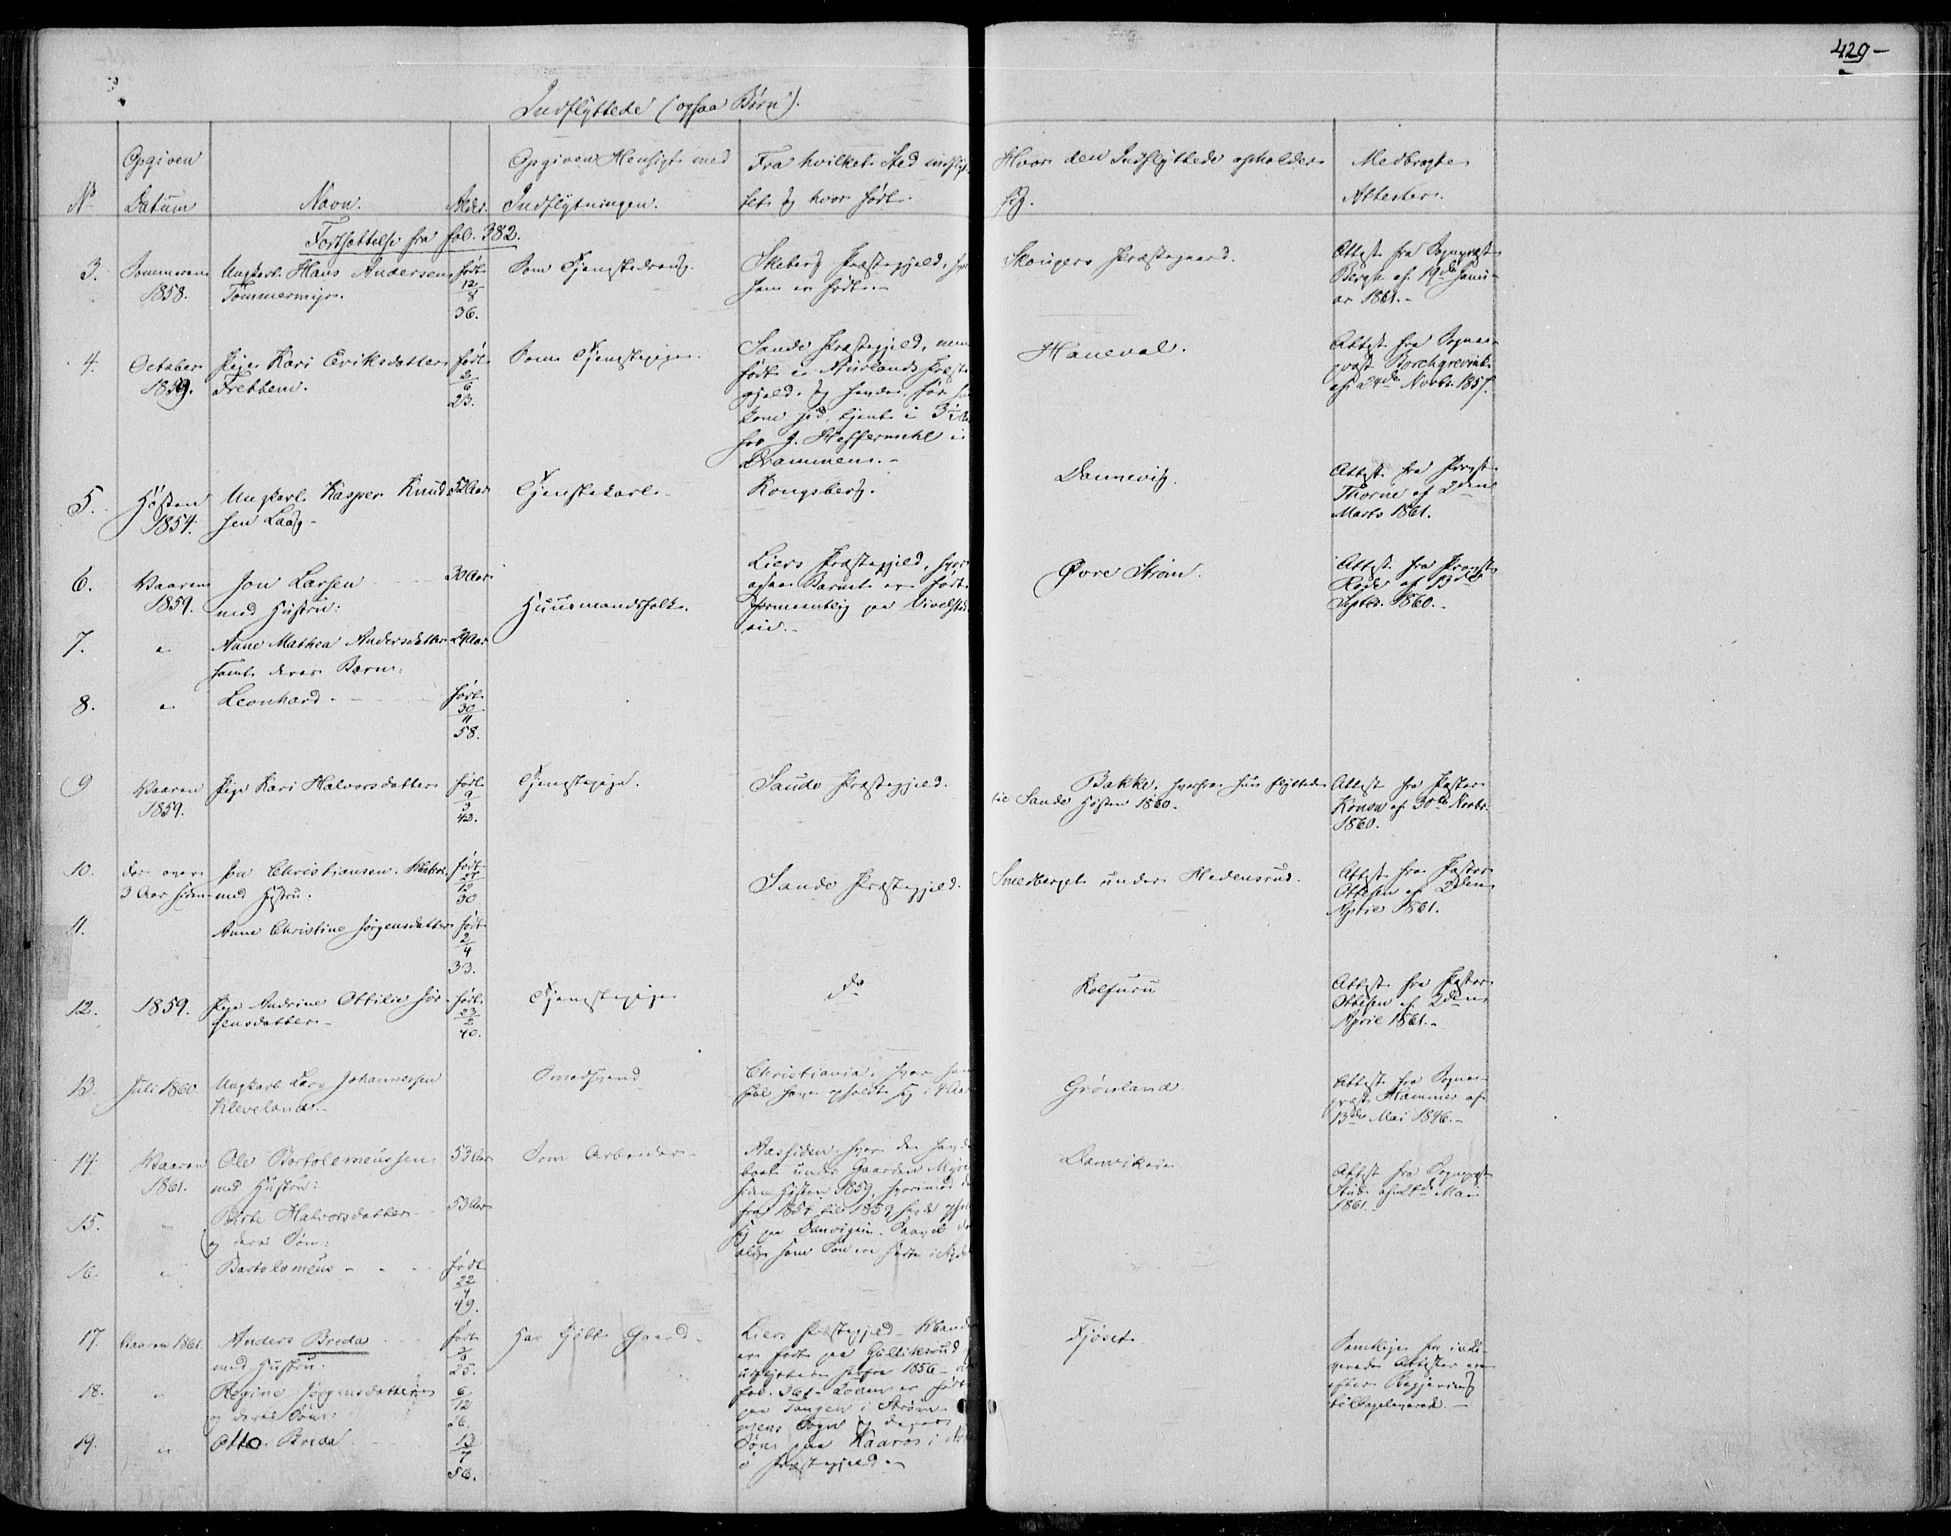 429 -
Indflyttede (ogsaa Børn).
No
Opgiven
Datum
Navn.
Alder.
Opgiven Hensigt med
Indflytningen.
Fra hvilket Sted indflyt-
tet og hvor født.
Hvor den Indflyttede opholder
sig.
Medbragte
Attester.
Fortsættelse fra fol. 382.
3.
Sommeren
1858.
Ungkarl Hans Andersen
Tømmermyr.
født
12
8
36.
Som Tjenestedreng.
Præstegjeld,
han er født.
Skougers Præstegaard.
Attest fra Sognepræst
Bergh af 19de Janu-
ar 1861.-
4.
October
1859.
Pige Kari Eriksdatter
Fretheim.
født
2
6
23.
Som Tjenestepige.
Sande Præstegjeld, men
født i Aurlands Præste-
gjeld,
tjent i 3
for J. Heffermehl i
Drammen.-
Haneval.
Attest fra Sogne-
præst Borchgrevink
af 24de Novbr. 1857.
5.
Høsten
1854.
Ungkarl Kasper Knud-
sen Laag-
52 Aar
Tjenestekarl.
Kongsberg.
Dannevig.
Attest fra Provst
Thorne af 2den
Marts 1861.
6.
Vaaren
1859.
Jon Larsen
med Hustru:
30 Aar
Huusmandsfolk.
Liers Præstegjeld, hvor
ogsaa Barnet er født
formeentlig paa
Øvre Strøm.
Attest fra Provst
Rode af 13de
Septbr. 1860.-
7.
"
Anne Mathea Andersdatter
samt deres Barn:
24 Aar
8.
"
Leonhard.
født
30
11
58.
9
Vaaren
1859.
Pige Kari Halvorsdatter
født
9
3
42.
Tjenestepige.
Sande Præstegjeld.
Bakke, hvorfra hun flyttede
til Sande Høsten 1860.
Attest fra Pastor
Konow af 30te Novbr.
1860.
10.
for over
3 Aar siden
Jon Christiansen,
med Hustru:
født
12
30
Sande Præstegjeld.
Smedberget under Hedensrud.
Attest fra Pastor
Ottesen af 2den
April 1861.
11.
Anne Christine Jørgensdatter
født
2
4
33.
12.
1859.
Pige Andrine Ottilie Jør-
gensdatter-
født
23
2
40.
Tjenestepige
do
Kolfuru
Attest fra Pastor
Ottesen af 2den
April 1861.-
13.
Juli 1860
Ungkarl Lars Johannessen
Kleveland.-
Smedsvend
Christiania, hvor han
skal have opholdt sig i 4 Aar
Grønland.
Attest fra Sogne-
præst Hammer af
13de Mai 1846.-
14.
Vaaren
1861.
Ole Bartolemeussen
med Hustru:
53 Aar
Som Arbeider.
Aassiden, hvor de havde
boet under Gaarden Myre
siden Høsten 1859, hvorimod de
fra 1857 til 1859 havde ophol
sig paa Danvigeie.
som Søn ere født i
Danvikeie
Attest fra Sognepræst
Mai
1861.
15.
"
Berte Halvorsdatter
og deres Søn:
53 Aar
16.
"
Bartolomeus - - -
født
22
4
49.
17.
Vaaren 1861.
Anders Breda
med Hustru:
født
6
25.
Har kjøbt Gaard-
Liers Præstegjeld - Manden
er født paa Gulliksrud
udflyttede herfra 1856 -
fol. 361 - Konen er født
paa Tangen i Strøm-
mens Sogn og deres
Søn paa Kaarøs i
Præstegjeld-
Fjøset
Samtlige
Attester ere
efter Begjering
tilbageleveret.-
18.
"
Regine Jørgensdatter
og deres Søn:
6
12
26.
19.
"
Otto Breda
13
7
56.